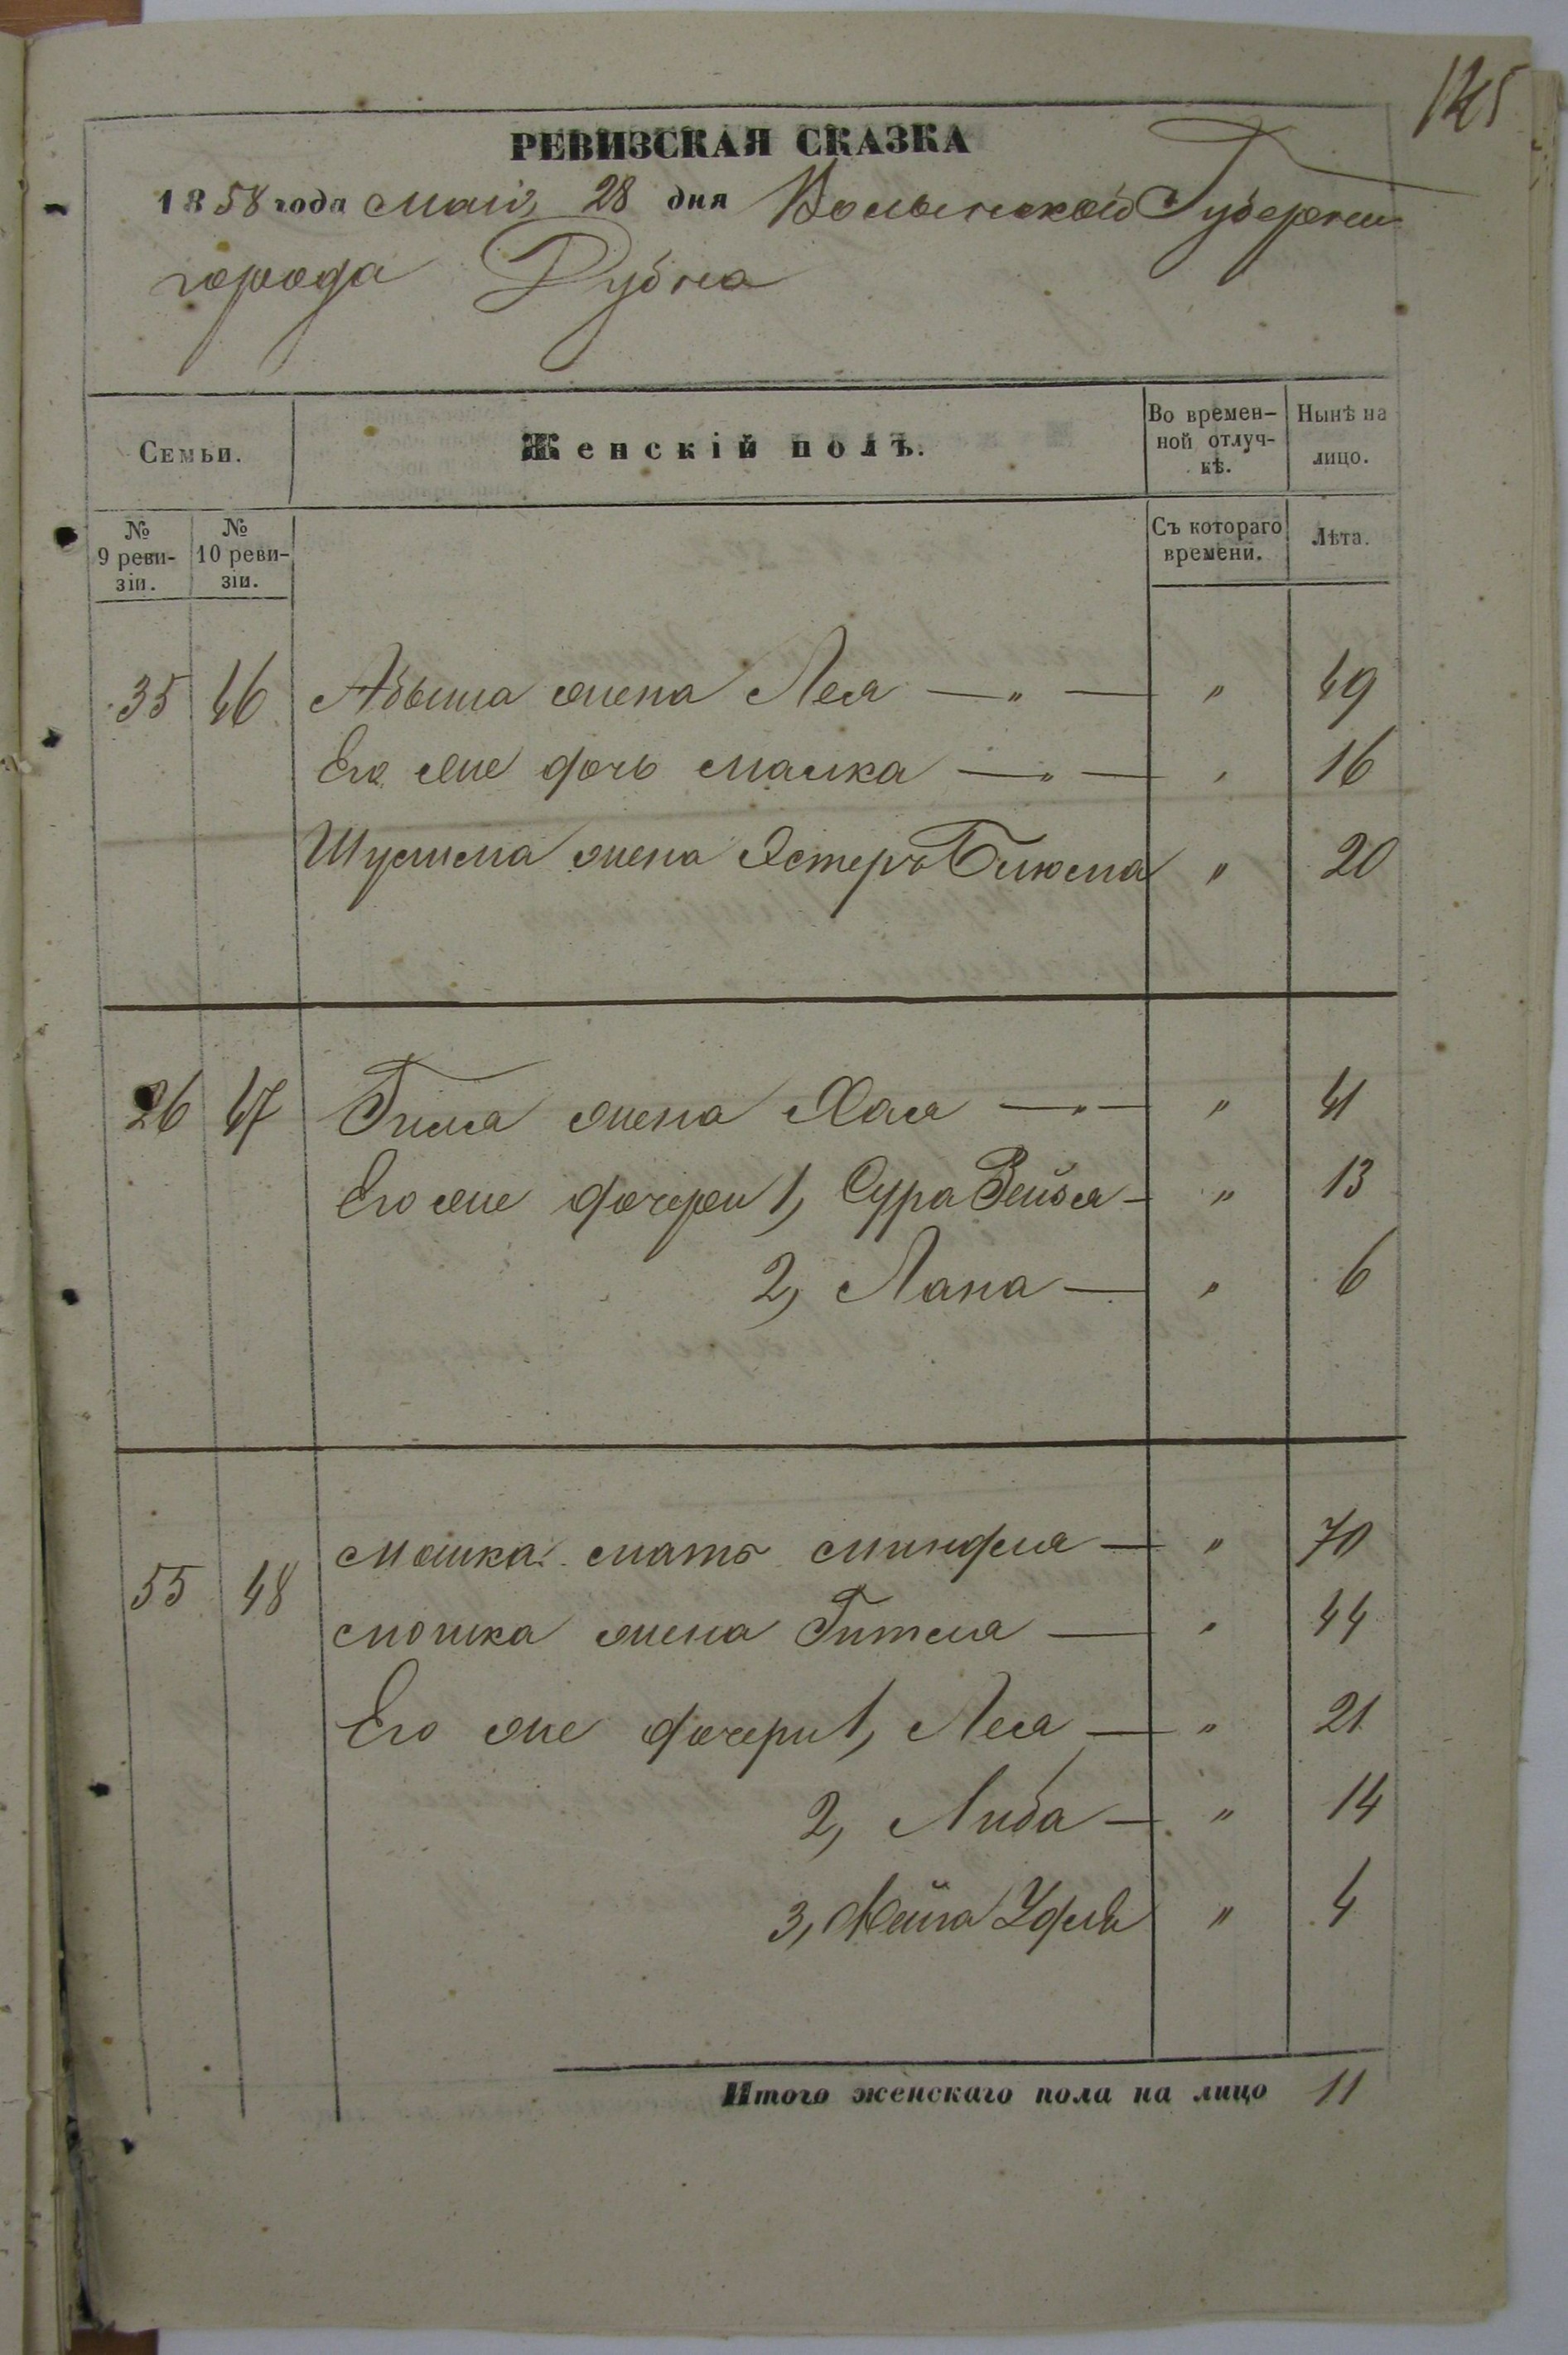 145
РЕВИЗСКАЯ СКАЗКА
1858 года мая 28 дня Волынской Губернии
города Дубна
Семьи.
Женскій полъ.
Во времен-
ной отлуч-
кѣ.
Нынѣ на
лицо.
№
9 реви-
зіи.
№
10 реви-
зіи.
Съ котораго
времени.
Лѣта.
35 46 Абыша жена Лея — „ — „ 49
Его же дочь Малка — „ — „ 16
жена Эстеръ Блюма „ 20
26 47 жена Хая — „ — „ 41
Его же дочери 1, Сура Бейля — „ 13
2, Хана — „ 6
55 48 Мошка мать Миндля — „ 70
Мошка жена Гитля — „ 44
Его же дочери 1, Лея — „ 21
2, Либа — „ 14
3, Фейга Удля „ 4
Итого женскаго пола на лицо 11